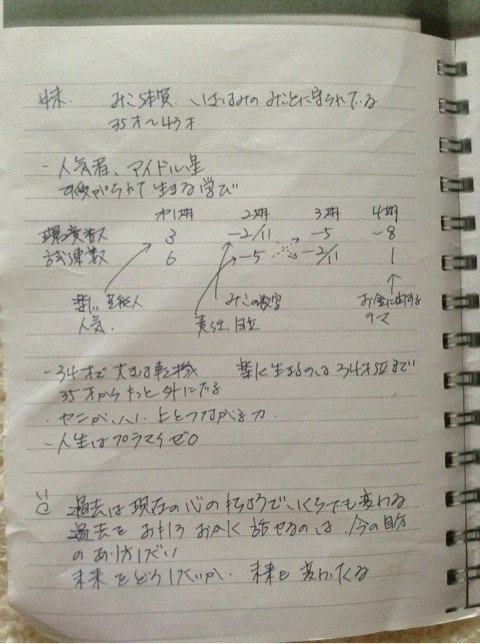 みこ体質、いばらみのみことに守られている
35才〜43才
- 人気者、アイドル星
可愛がられて生きる学び
才1期 2期 3期 4期
環境数 3 -2/11 -5 -8
試練数 6 -5 -2/11 1
楽しい 芸能人 みこの数字 お金に関する
人気. 責任、自立 テーマ
- 34才で大きな転換 楽に生きるのは34才位まで
35才からもっと外にでる
・カンがいい 上とつながる力
- 人生はプラマイゼロ
過去は現在の心の転ろうでいくらでも変わる
過去をおもしろおかしく話せるのは、今の自分
のあり方しだい
未来をどうしていくか、未来も変わってくる